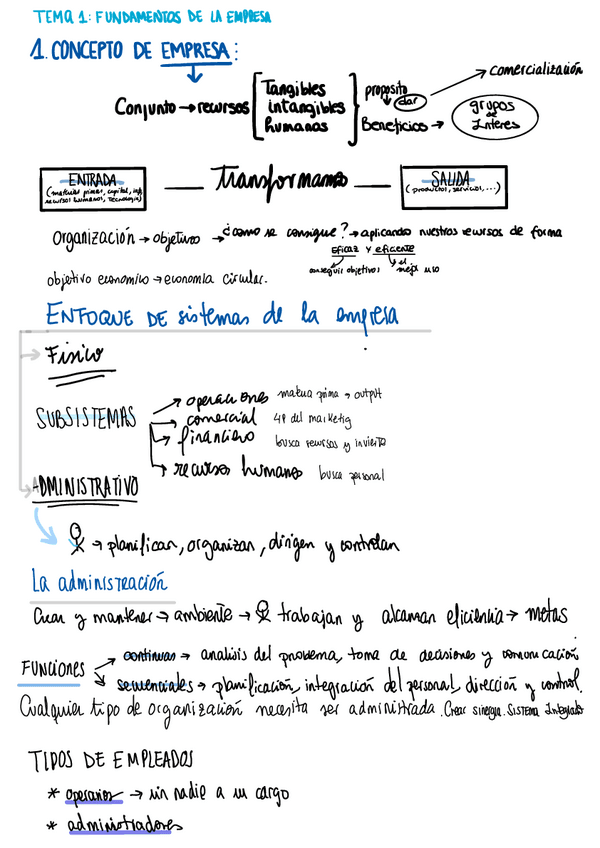 TEMA 1: FUNDAMENTOS DE LA EMPRESA
1. CONCEPTO DE EMPRESA:
Conjunto → recursos
Tangibles
intangibles
humanos
proposito → comercialización
dar
Beneficios → grupos de Interes
ENTRADA
(materias primas, capital, inf,
recursos humanos, tecnología)
Transformamos
SALIDA
(productos, servicios, ...)
Organización → objetivo → ¿como se consigue? → aplicando nuestros recursos de forma
eficaz y eficiente
conseguir objetivos
el mejor uso
objetivo economico → economia circular.
ENFOQUE DE sistemas de la empresa
→ Fisico
SUBSISTEMAS
→ operaciones materia prima → output
→ comercial 4P del marketig
→ financiero busca recursos y invierte
→ recursos humanos busca personal
→ ADMINISTRATIVO
→ planifican, organizan, dirigen y controlan
La administración
Crear y mantener → ambiente → trabajan y alcanzan eficiencia → metas
FUNCIONES
→ continuas → analisis del problema, toma de decisiones y comunicación
→ secuenciales → planificación, integración del personal, dirección y control.
Cualquier tipo de organización necesita ser administrada. Crear sinergia. Sistema Integrado
TIPOS DE EMPLEADOS
* operarios → sin nadie a su cargo
* administradores